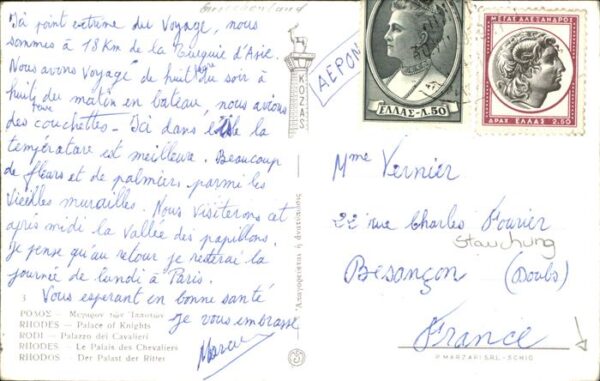 Ici point extrême du voyage, nous
sommes à 18 Km de la Turquie d'Asie.
Nous avons voyagé de huit hres du soir à
huit hres du matin en bateau, nous avions
des couchettes - Ici dans l'île la
température est meilleure. Beaucoup
de fleurs et de palmiers parmi les
vieilles murailles. Nous visiterons cet
après midi la Vallée des papillons.
Je pense qu'au retour je resterai la
journée de lundi à Paris.
Vous espérant en bonne santé
je vous embrasse
3
ΡΟΔΟΣ — Μέγαρον τῶν Ἱπποτῶν
RHODES — Palace of Knights
RODI — Palazzo dei Cavalieri
RHODES — Le Palais des Chevaliers
RHODOS — Der Palast der Ritter
KOZAS
Ἀπαγορεύεται ἡ ἀνατύπωσις
ΑΕΡΟΠ
ΕΛΛΑΣ-Λ.50
ΜΕΓΑΣ ΑΛΕΞΑΝΔΡΟΣ
ΔΡΑΧ. ΕΛΛΑΣ 2.50
Mme Vernier
22 rue Charles Fourier
Stauchung
Besançon (Doubs)
France
P. MARZARI S.R.L.-SCHIO